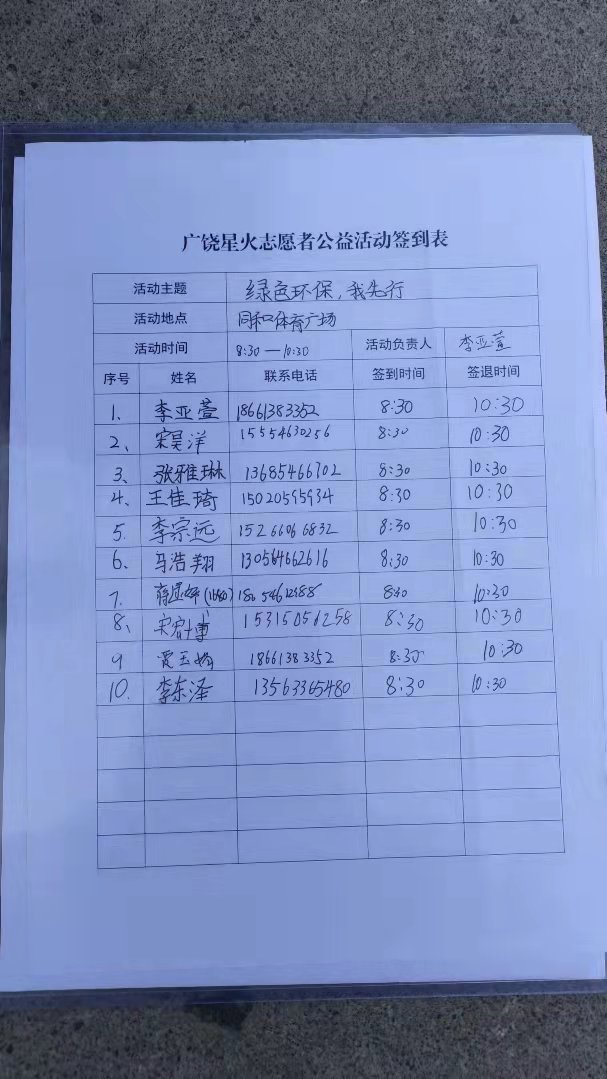 广饶星火志愿者公益活动签到表
活动主题 绿色环保,我先行
活动地点 同和体育广场
活动时间 8:30—10:30 活动负责人 李亚萱
序号 姓名 联系电话 签到时间 签退时间
1、 李亚萱 18661383352 8:30 10:30
2、 宋昊洋 15554630256 8:30 10:30
3、 张雅琳 13685466702 8:30 10:30
4、 王佳琦 15020595934 8:30 10:30
5. 李宗远 15266066832 8:30 10:30
6、 马浩翔 130564662616 8:30 10:30
7. 8:30 10:30
8、 15315056258 8:30 10:30
9 贾玉 18661383352 8:30 10:30
10. 李东泽 13563365480 8:30 10:30